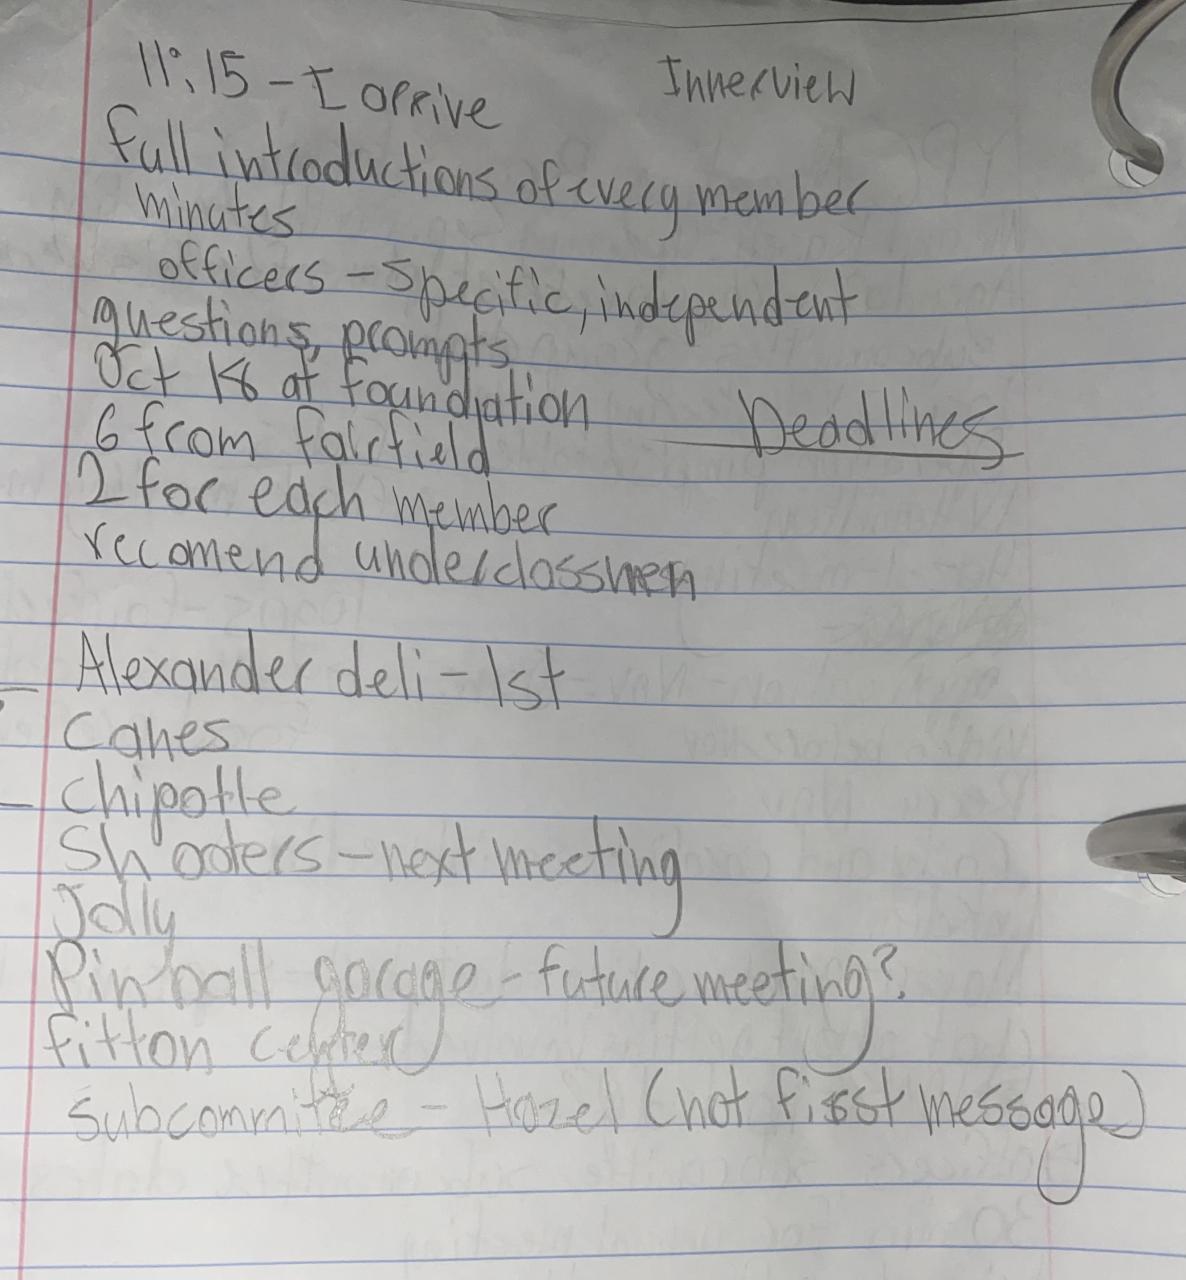 11:15 - I arrive
Innerview
full introductions of every member
minutes
officers - specific, independent
questions, prompts
Oct at foundation
Deadlines
6 from fairfield
2 for each member
recomend underclassmen
Alexander deli - 1st
- Canes
- Chipotle
Shooters - next meeting
Jolly
Pinball garage - future meeting?
fitton center
subcommitee - Hazel (not first message)